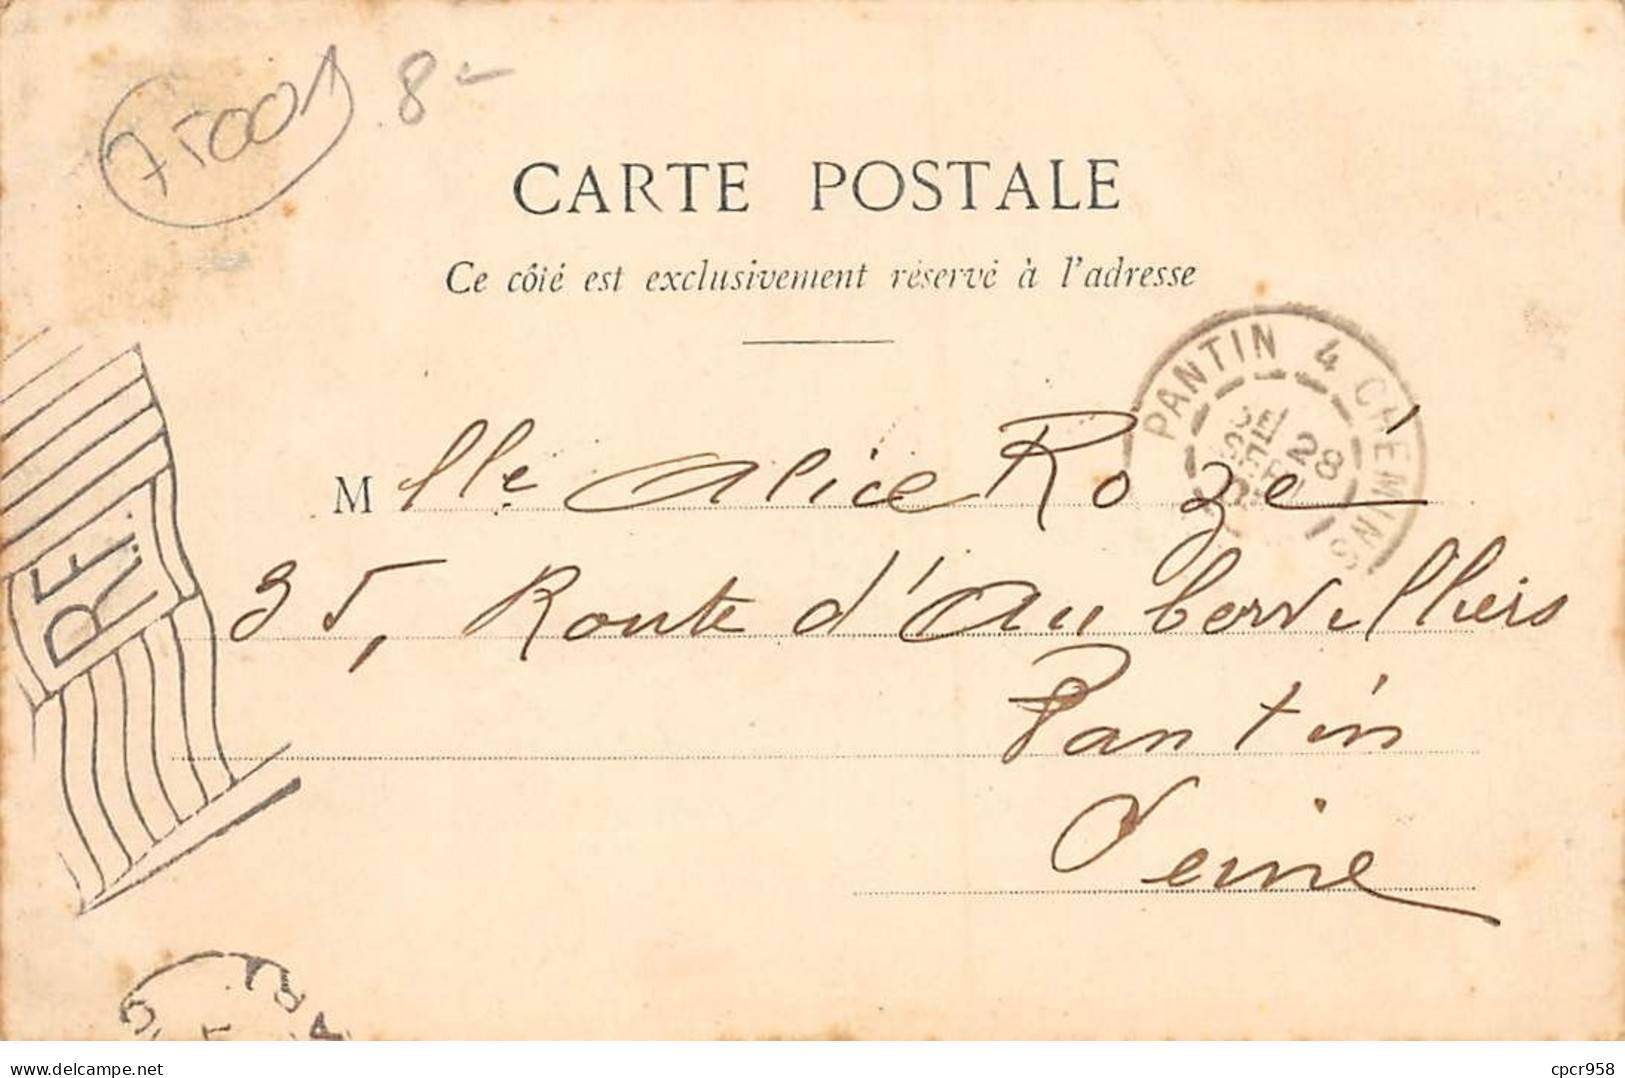 75001 8-
CARTE POSTALE
Ce côté est exclusivement réservé à l'adresse
PANTIN 4 CHEMINS
28
Mlle Alice Rozé
35, Route d'Aubervilliers
Pantin
Seine
RF
delcampe.net
cpcr958